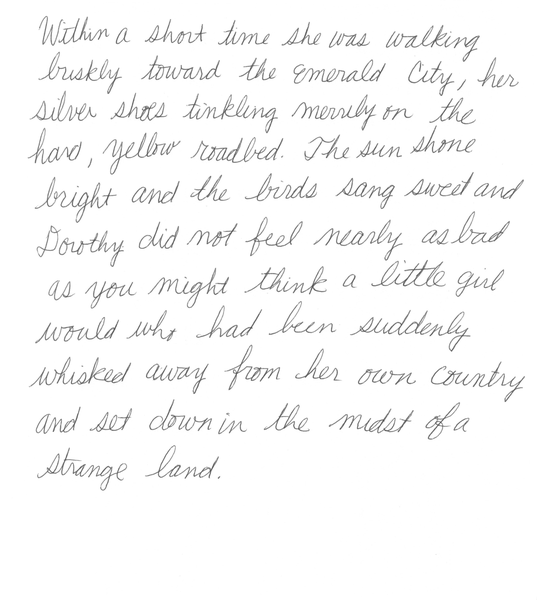 Within a short time she was walking
briskly toward the Emerald City, her
silver shoes tinkling merrily on the
hard, yellow roadbed. The sun shone
bright and the birds sang sweet and
Dorothy did not feel nearly as bad
as you might think a little girl
would who had been suddenly
whisked away from her own country
and set down in the midst of a
strange land.